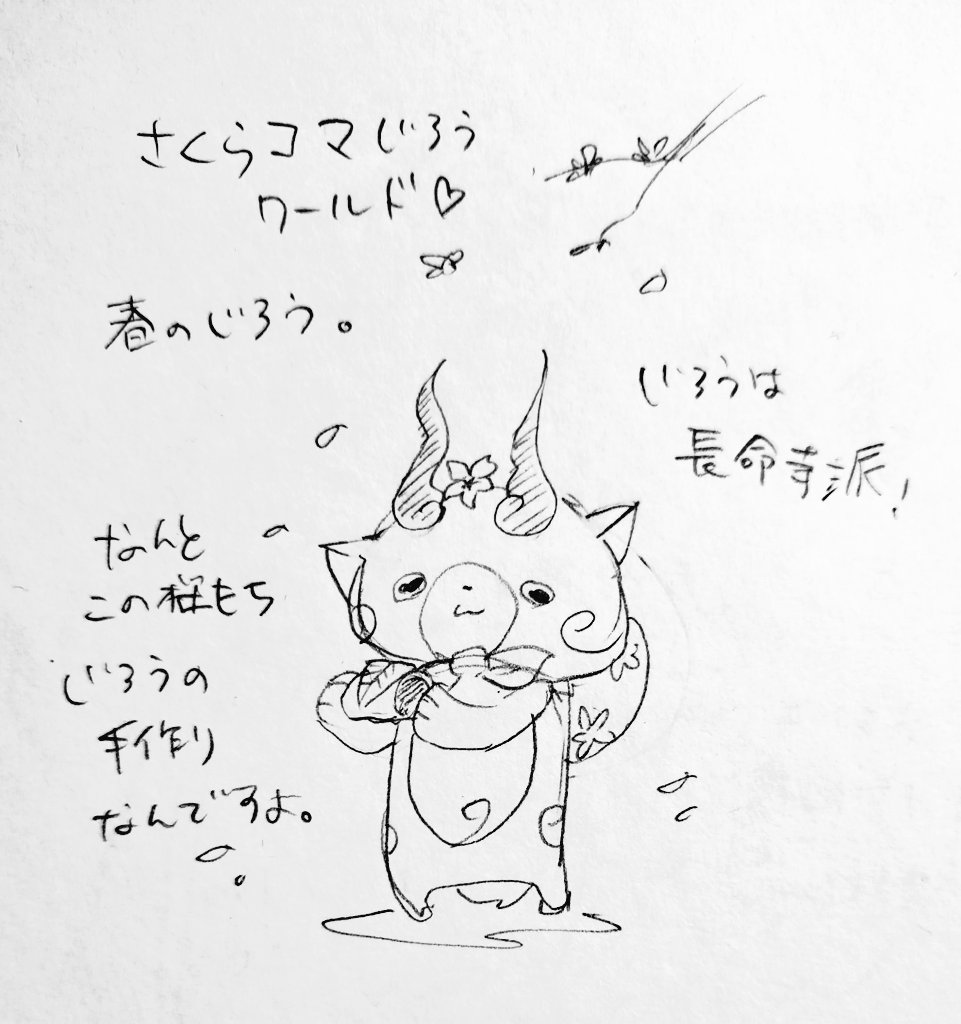 さくらコマじろう
ワールド♡
春のじろう。
じろうは
長命寺派!
なんと
この桜もち
じろうの
手作り
なんですよ。